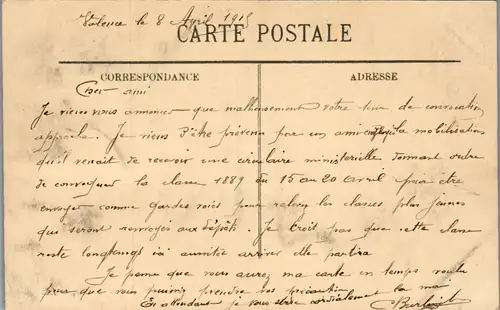 Valence le 8 Avril 1915
CARTE POSTALE
CORRESPONDANCE
ADRESSE
Cher ami
Je viens vous annoncer que malheureusement votre tour de convocation
approche. Je viens d'être prévenu par un ami la mobilisation
qu'il venait de recevoir une circulaire ministerielle donnant ordre
de convoquer la classe 1889 du 15 au 20 avril pour être
envoyer comme gardes voies pour relever les classes plus jeunes
qui seront renvoyés aux dépôts. Je crois pas que cette classe
reste longtemps ici aussitôt arriver elle partira
Je pense que vous aurez ma carte en temps voulu
pour que vous puissiez prendre vos précautions
En attendant je vous serre cordialement la main